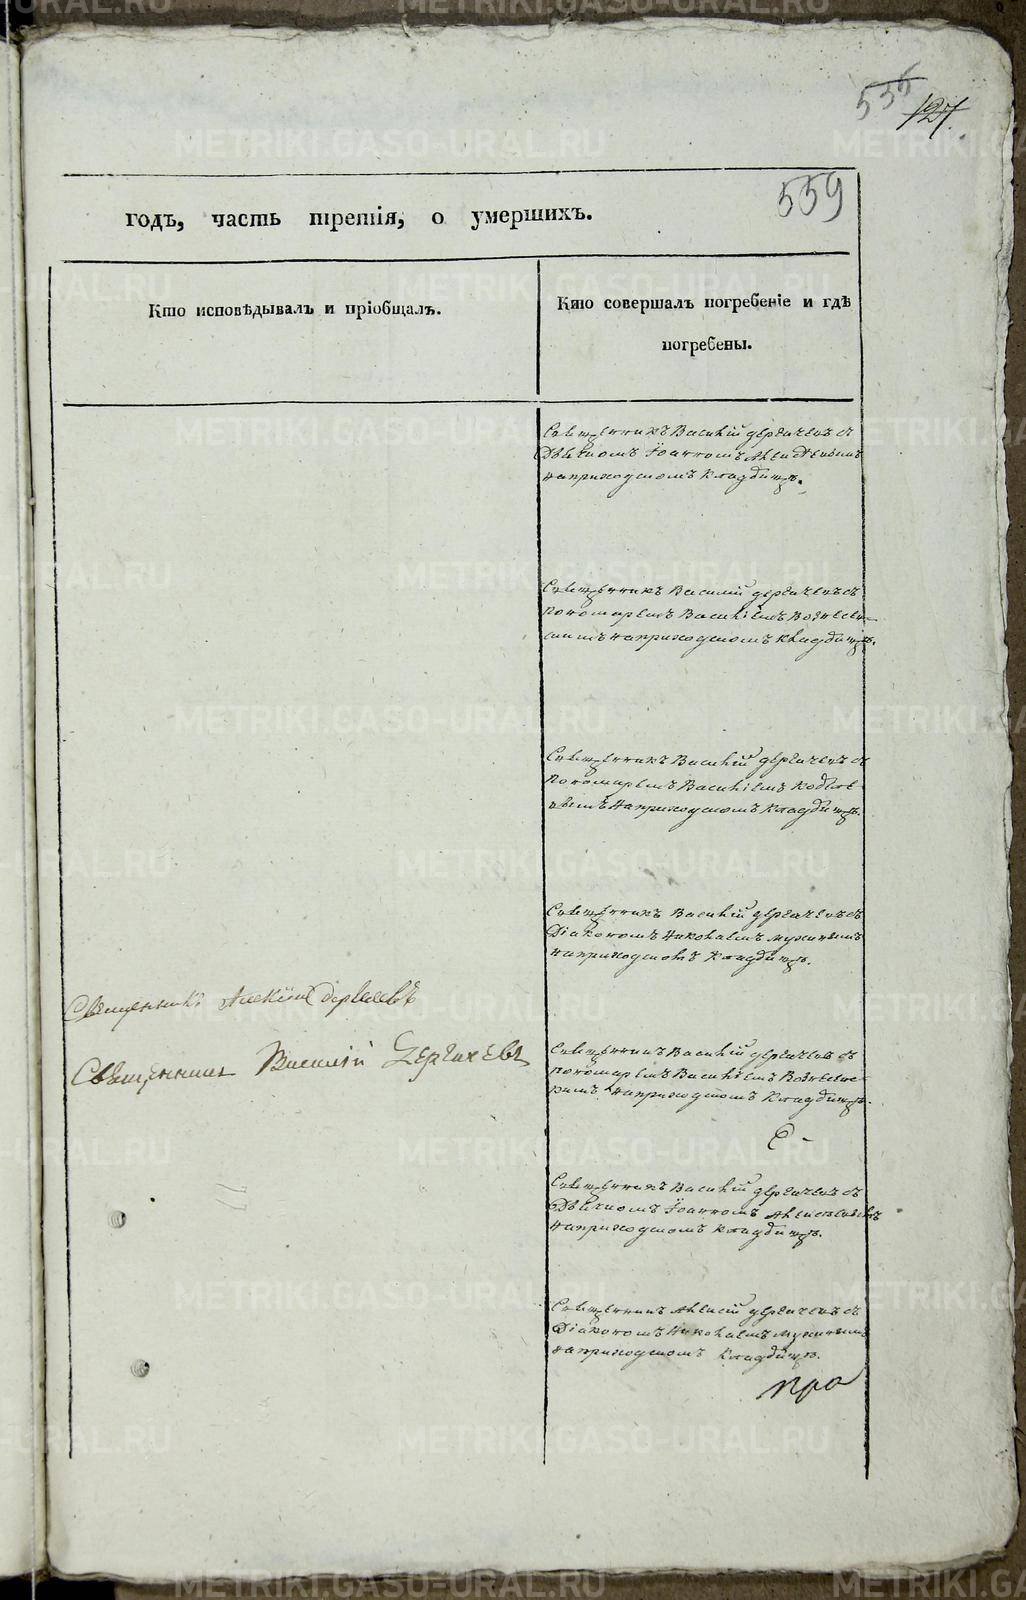 556
127.
559
годъ, часть третія, о умершихъ.
Кто исповѣдывалъ и пріобщалъ.
Кто совершалъ погребеніе и гдѣ
погребены.
Священникъ Василій Дергачевъ съ
Дьячкомъ Іоанномъ
на приходскомъ кладбищѣ.
Священникъ Василій Дергачевъ съ
пономаремъ Василіемъ Вознесен-
скимъ на приходскомъ кладбищѣ.
Священникъ Василій Дергачевъ съ
пономаремъ Василіемъ
на приходскомъ кладбищѣ.
Священникъ Василій Дергачевъ съ
Діакономъ Николаемъ
на приходскомъ кладбищѣ.
Священникъ Алексій Дергачевъ
Священникъ Василій Дергачевъ
Священникъ Василій Дергачевъ съ
пономаремъ Василіемъ Вознесен-
скимъ на приходскомъ кладбищѣ.
С-
Священникъ Василій Дергачевъ съ
Дьячкомъ Іоанномъ
на приходскомъ кладбищѣ.
Священникъ Алексій Дергачевъ съ
Діакономъ Николаемъ
на приходскомъ кладбищѣ.
про
METRIKI.GASO-URAL.RU